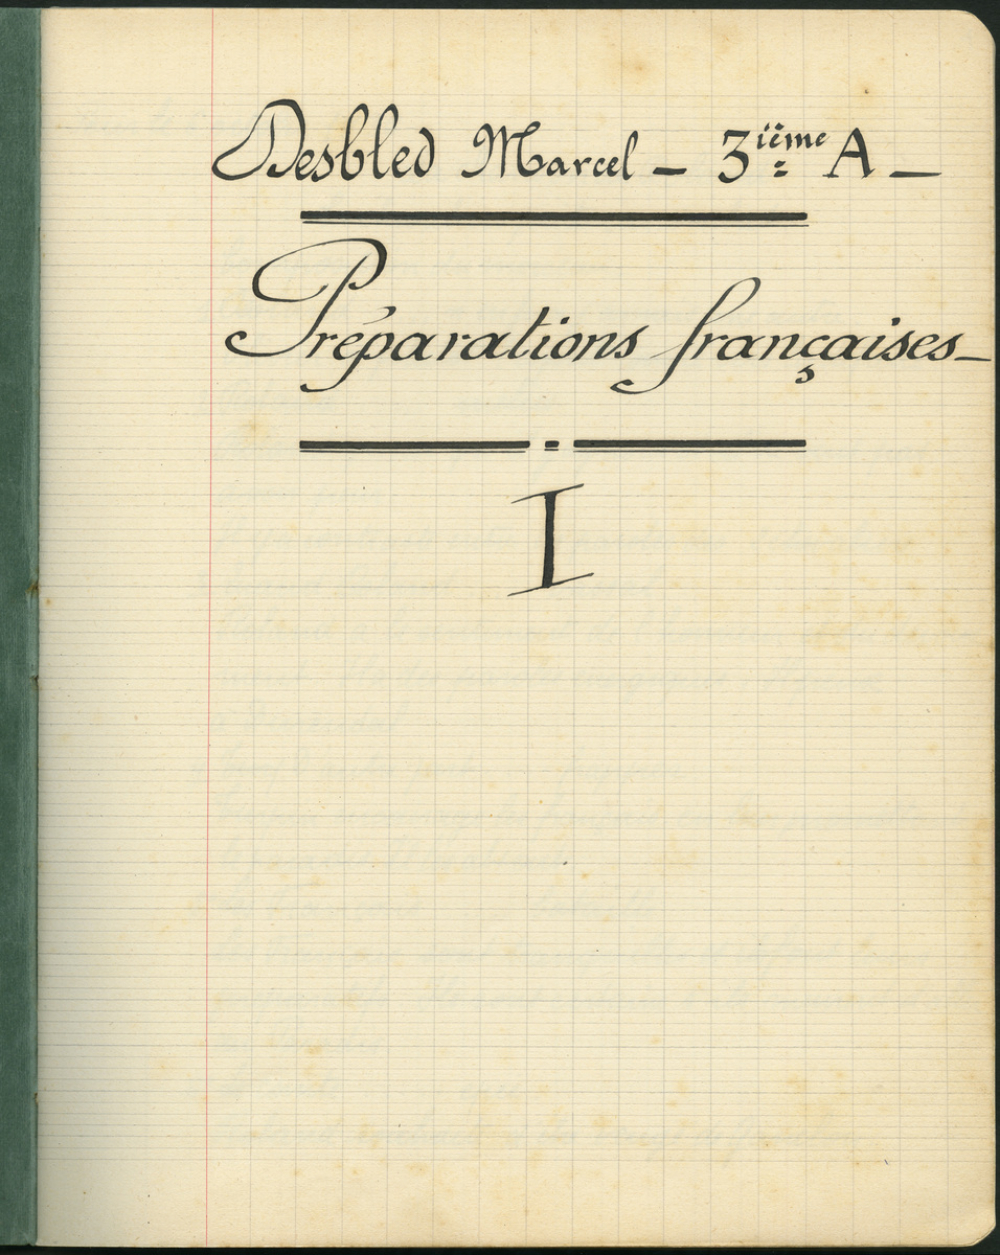 Desbled Marcel – 3ième A –
Préparations françaises –
I